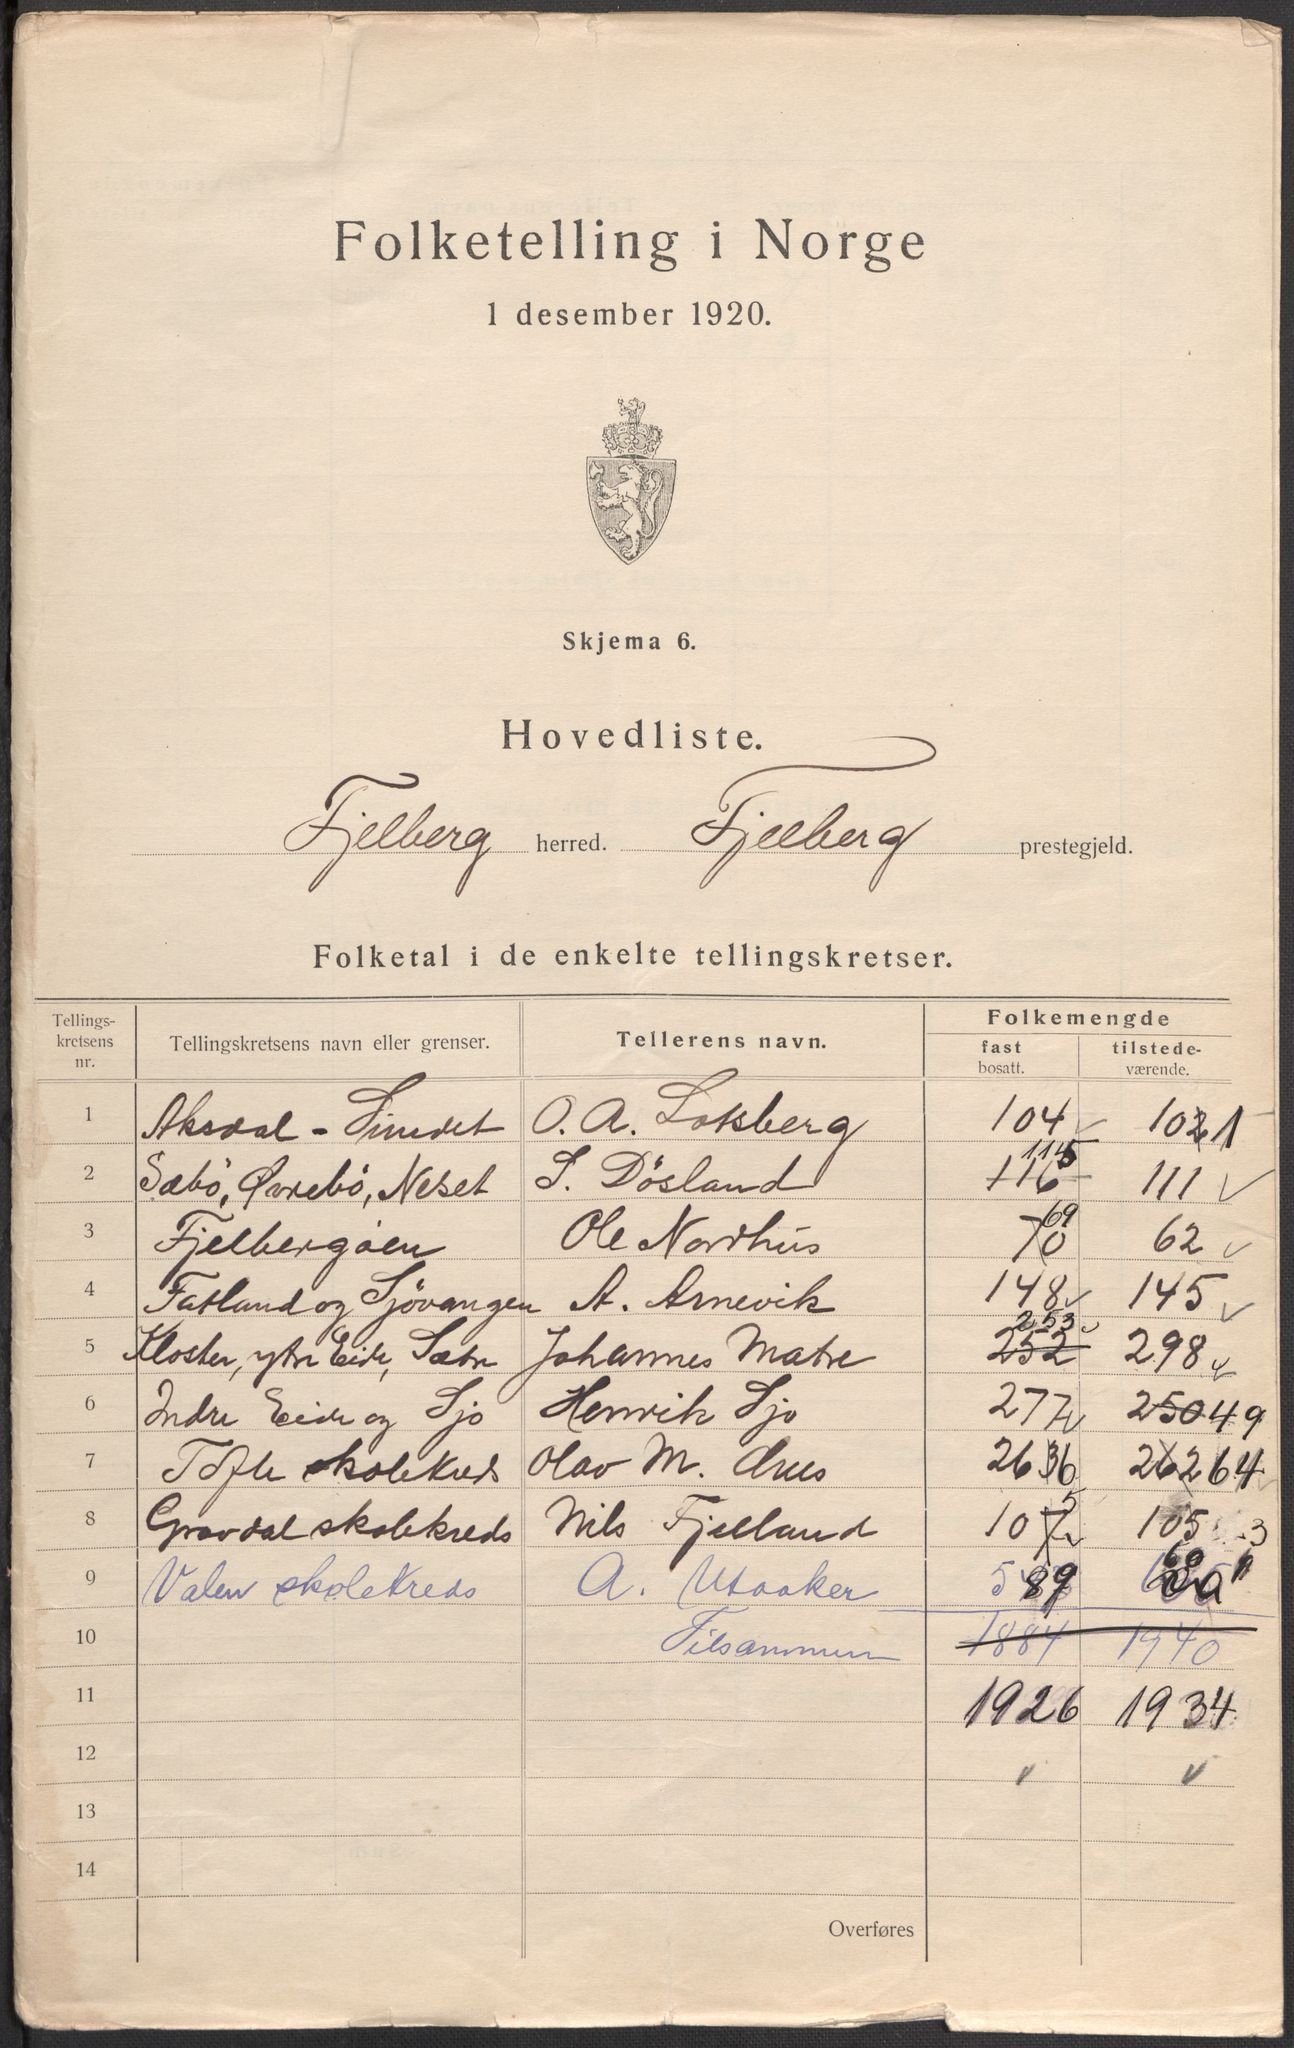 Folketelling i Norge
1 desember 1920.
Skjema 6.
Hovedliste.
Fjelberg herred. Fjelberg prestegjeld.
Folketal i de enkelte tellingskretser.
Tellings-kretsens nr. Tellingskretsens navn eller grenser. Tellerens navn. Folkemengde
fast bosatt. tilstede-værende.
1 Aksdal - O. A. Loksberg 104 1021
2 Sæbö, Øvrebö, Neset S. Dösland 116 115 111
3 Fjelbergöen Ole Nordhus 70 69 62
4 Fatland og Sjövangen A. Arnevik 148 145
5 Kloster, ytre Eide, Sætre Johannes Matre 252 253 298
6 Indre Eide og Sjo Henrik Sjo 277 250 49
7 Tofte skolekreds Olav M. 266 262 64
8 Gravdal skolekreds Nils Fjelland 107 5 105 3
9 Valen skolekreds A. Utaaker 589
10 Tilsammen 1884 1940
11 1926 1934
12
13
14
Overføres